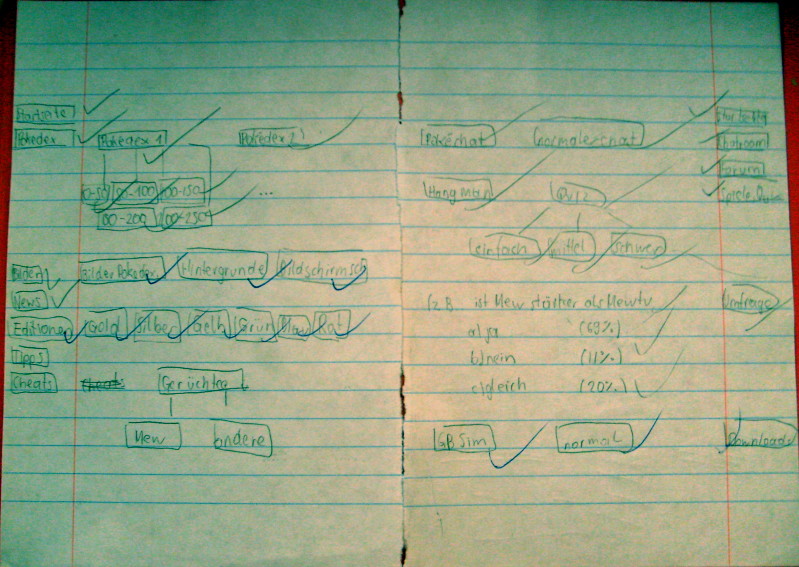 Startseite
Pokedex Pokedex 1 Pokedex 2
0-50 00-100 100-150 ...
00-200 00-250
Bilder Bilder Pokedex Hintergründe Bildschirmsch
News
Editionen Gold Silber Gelb Grün Blau Rot
Tipps
Cheats Gerüchte
Mew andere
Pokéchat normaler chat Chatroom
Forum
Hangman Quiz Spiele, Quiz
einfach mittel schwer
z.B. ist Mew stärker als Mewtu Umfrage
a) ja (69%)
b) nein (11%)
c) gleich (20%)
GB Sim normal Downloads